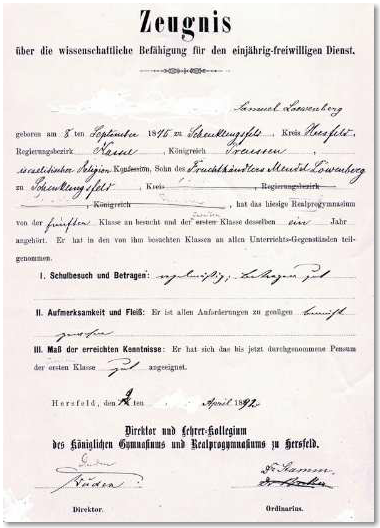 Zeugnis
über die wissenschaftliche Befähigung für den einjährig-freiwilligen Dienst.
Samuel Loewenberg
geboren am 8 ten September 1875 zu Schenklengsfeld, Kreis Hersfeld,
Regierungsbezirk Kassel, Königreich Preussen,
israelitischer Religion Konfession, Sohn des Fruchthändlers Mendel Löwenberg
zu Schenklengsfeld, Kreis Regierungsbezirk
Königreich hat das hiesige Realprogymnasium
von der fünften Klasse an besucht und der ersten Klasse desselben ein Jahr
angehört. Er hat in den von ihm besuchten Klassen an allen Unterrichts-Gegenständen teil-
genommen.
I. Schulbesuch und Betragen: regelmäßig; betragen gut
II. Aufmerksamkeit und Fleiß: Er ist allen Anforderungen zu genügen bemüht
gewesen
III. Maß der erreichten Kenntnisse: Er hat sich das bis jetzt durchgenommene Pensum
der ersten Klasse gut angeeignet.
Hersfeld, den ten April 1892.
Direktor und Lehrer-Kollegium
des Königlichen Gymnasiums und Realprogymnasiums zu Hersfeld.
Duden
Duden Dr. Stamm
Direktor. Ordinarius.